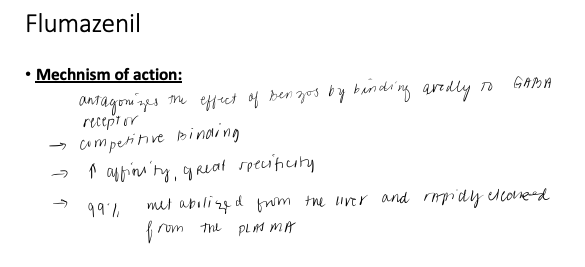 Flumazenil
• Mechnism of action:
antagonizes the effect of benzos by binding avedly to GABA
receptor
→ competitive Binding
→ ↑ affinity, great specificity
→ 99% metabilized from the liver and rapidly cleared
from the PLASMA